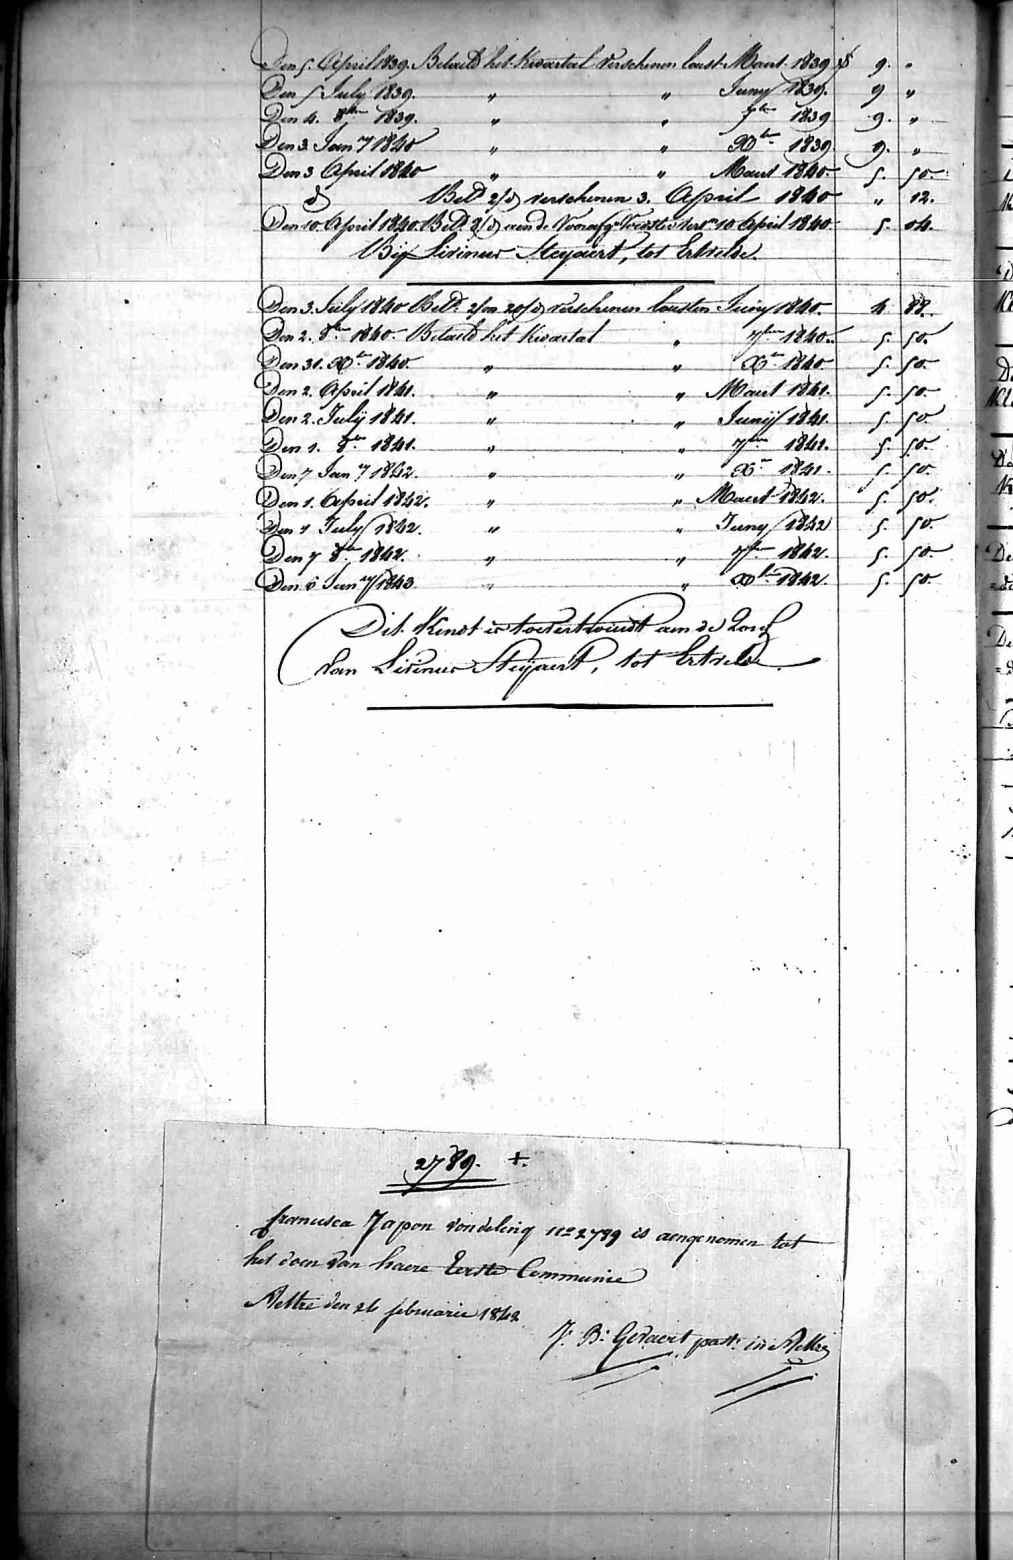 Den 5. April 1839. Betaeld het Kwartal Verschenen laest Maert 1839 f 9. "
Den 5 July 1839. " " Juny 1839. 9 "
Den 4. 8ber 1839. " " 7ber 1839 9. "
Den 3. Jan.y 1840 " " Xber 1839 9. "
Den 3 April 1840 " " Maert 1840 5. 50
d° Betd 2/d verschenen 3. April 1840 " 12.
Den 10. April 1840. Betd aen de 10 April 1840 5. 04.
Bij Livinus Steyaert, tot Ertvelde.
Den 3. July 1840 Betd 2/m 20/d verschenen laesten Juny 1840. 4 88.
Den 2. 8ber 1840. Betaeld het Kwartal " 7ber 1840. 5. 50.
Den 31. Xber 1840. " " Xber 1840 5. 50.
Den 2. April 1841. " " Maert 1841. 5. 50.
Den 2. July 1841. " " Junij 1841. 5. 50.
Den 1. 8ber 1841. " " 7ber 1841. 5. 50.
Den 7 Jan.y 1842. " " Xber 1841. 5. 50.
Den 1. April 1842. " " Maert 1842. 5. 50.
Den 1 July 1842. " " Juny 1842 5. 50.
Den 7 8ber 1842. " " 7ber 1842. 5. 50.
Den 6 Jan.y 1843 " " Xber 1842. 5. 50.
Dit Kindt is toevertrouwdt aen de Zorg
van Livinus Steyaert, tot Ertvelde.
2789. +.
francisca Japon vondeling n° 2789 is aengenomen tot
het doen van haere Eerste Communie
Aeltre den 26 februarie 1842
J: B: Gevaert, past: in Aeltre